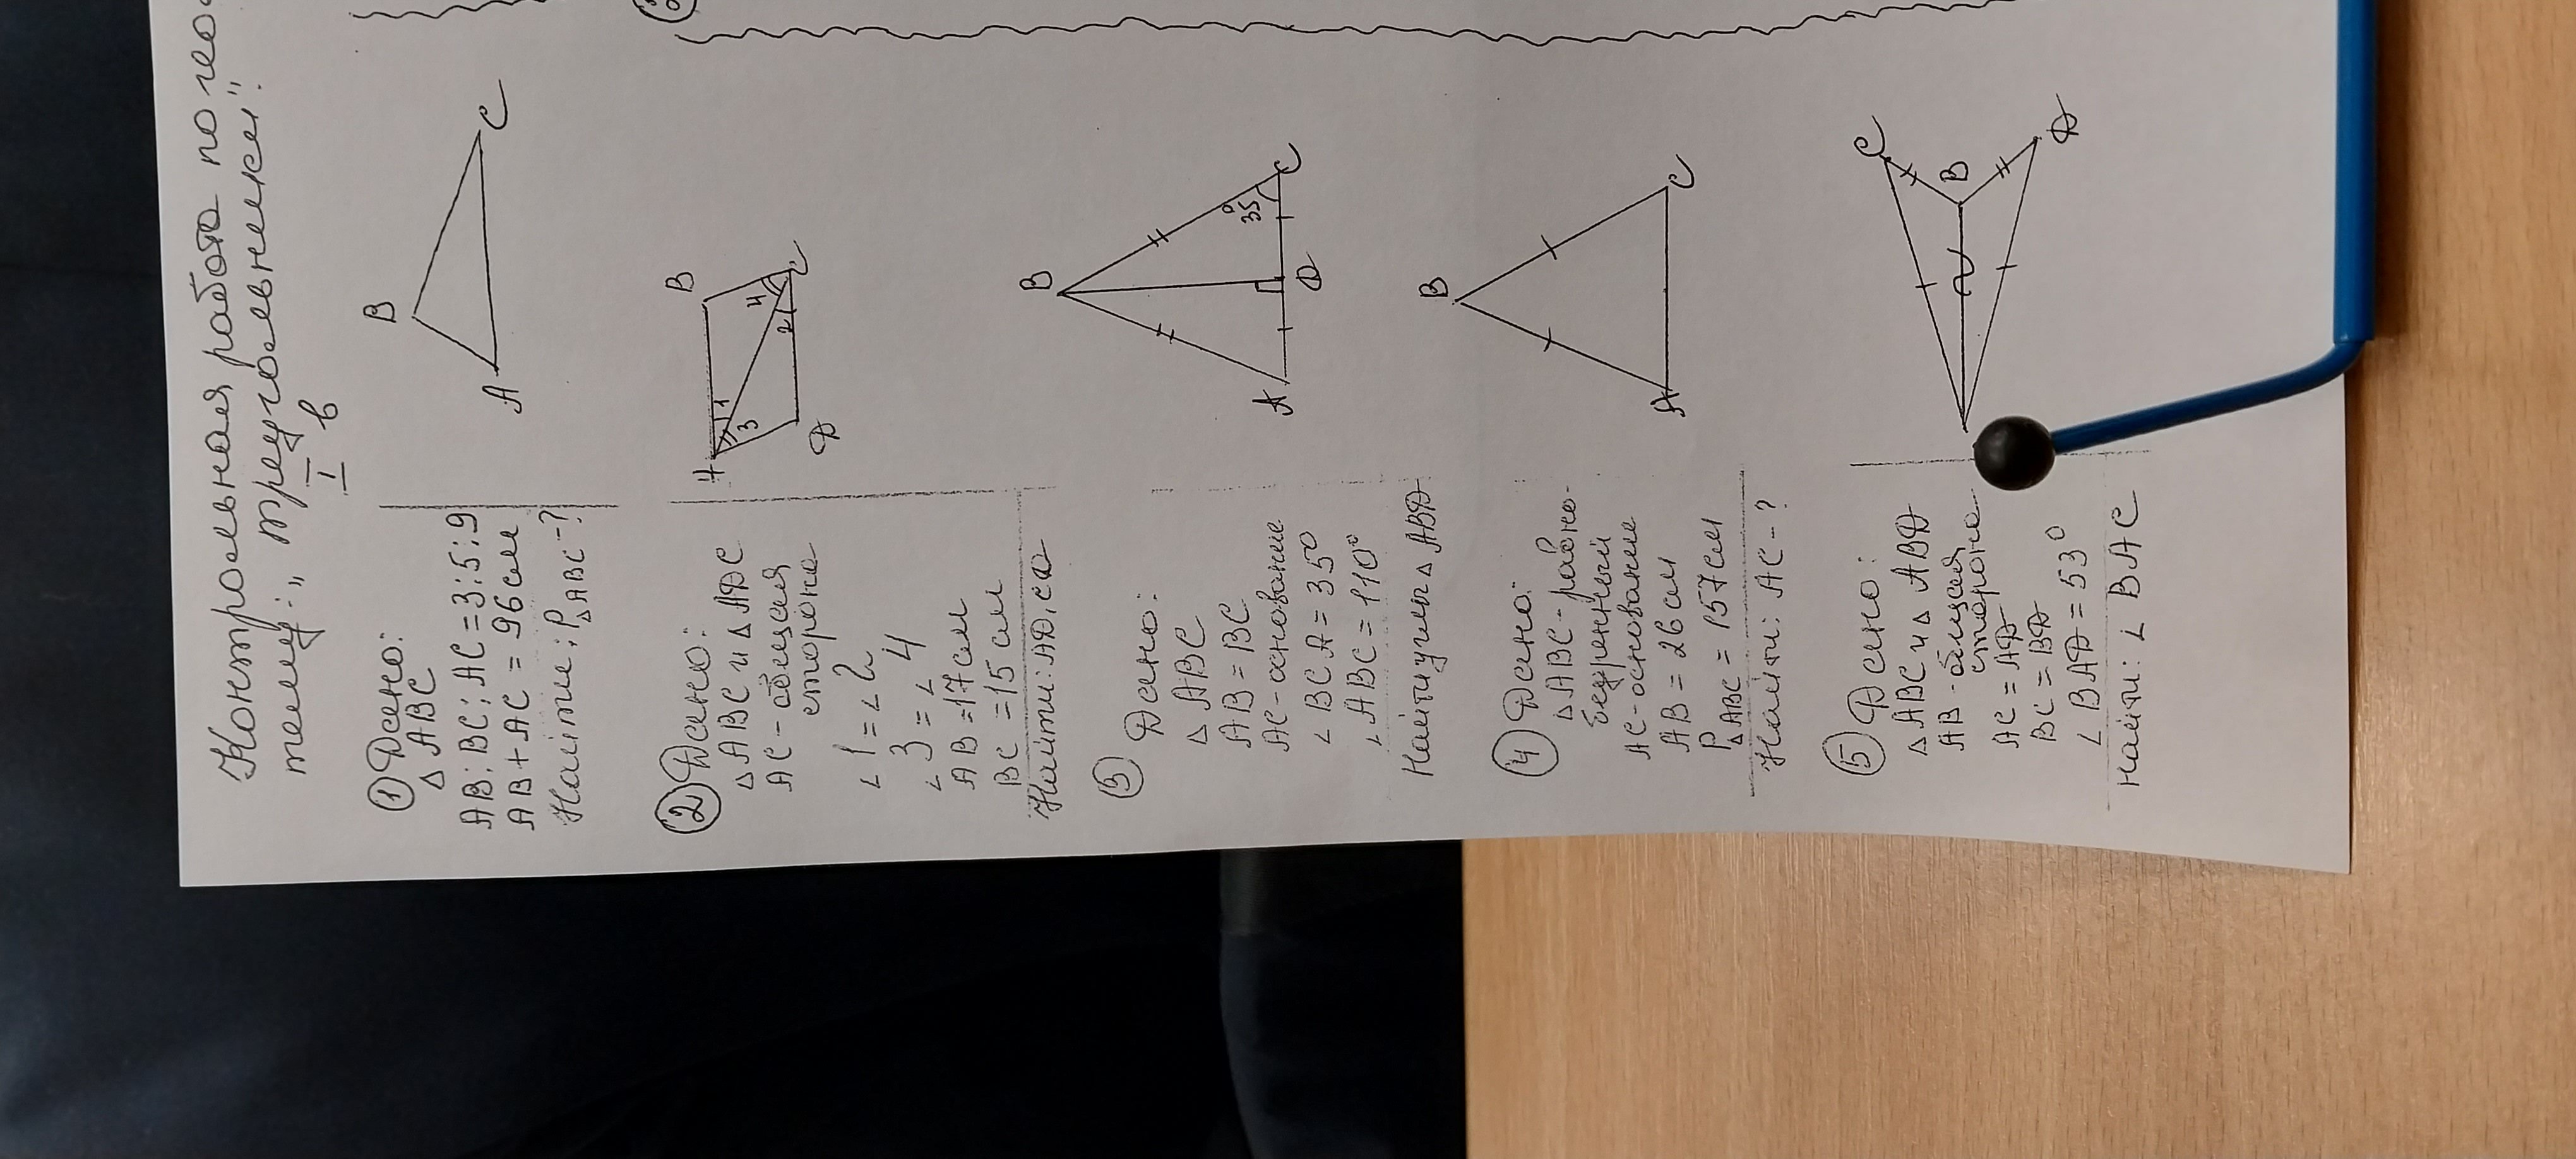 Контрольная работа по гео
тему: „Треугольники".
I в
① Дано:
△ABC
AB:BC:AC=3:5:9
AB+AC=96см
Найти: P△ABC-?
B
A
C
② Дано:
△ABC и △ADC
AC-общая
сторона
∠1=∠2
∠3=∠4
AB=17см
BC=15см
Найти: AD, CD
A
B
1
3
4
2
C
D
③ Дано:
△ABC
AB=BC
AC-основание
∠BCA=35°
∠ABC=110°
Найти углы △ABD.
B
35°
A
D
C
④ Дано:
△ABC-равно-
бедренный
AC-основание
AB=26см
P△ABC=157см
Найти: AC-?
B
A
C
⑤ Дано:
△ABC и △ABD
AB-общая
сторона
AC=AD
BC=BD
∠BAD=53°
Найти: ∠BAC
C
B
D